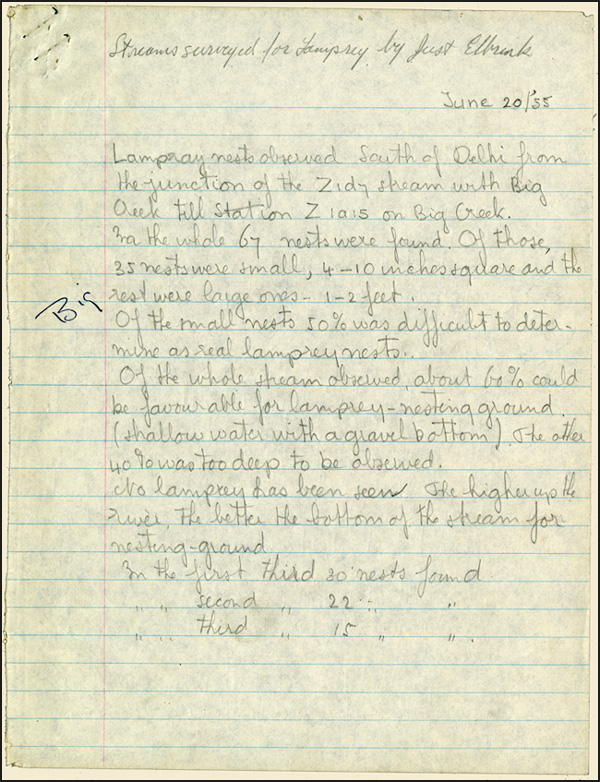 Streams surveyed for Lamprey by Just Elbrink
June 20/'55
Lampray nests observed South of Delhi from
the junction of the Z1d7 stream with Big
Creek till Station Z1a15 on Big Creek.
In the whole 67 nests were found. Of those,
35 nests were small, 4-10 inches square and the
Big
rest were large ones - 1-2 feet.
Of the small nests 50% was difficult to deter-
mine as real lamprey nests.
Of the whole stream observed, about 60% could
be favourable for lamprey-nesting ground.
(shallow water with a gravel bottom). The other
40% was too deep to be observed.
No lamprey has been seen. The higher up the
river, the better the bottom of the stream for
nesting-ground
In the first third 30 nests found
" " second " 22 " "
" " third " 15 " " .